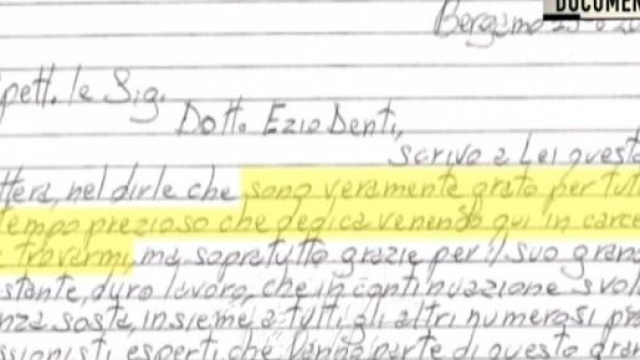 DOCUMEN
Bergamo
Spett.le Sig.
Dott. Ezio Denti,
scrivo a Lei questa
ttera, nel dirle che sono veramente grato per tut
tempo prezioso che dedica venendo qui in carce
a trovarmi, ma sopratutto grazie per il suo gran
stante, duro lavoro, che in continuazione svol
nza sosta, insieme a tutti gli altri numerosi pr
ssionisti esperti che fanno parte di questo